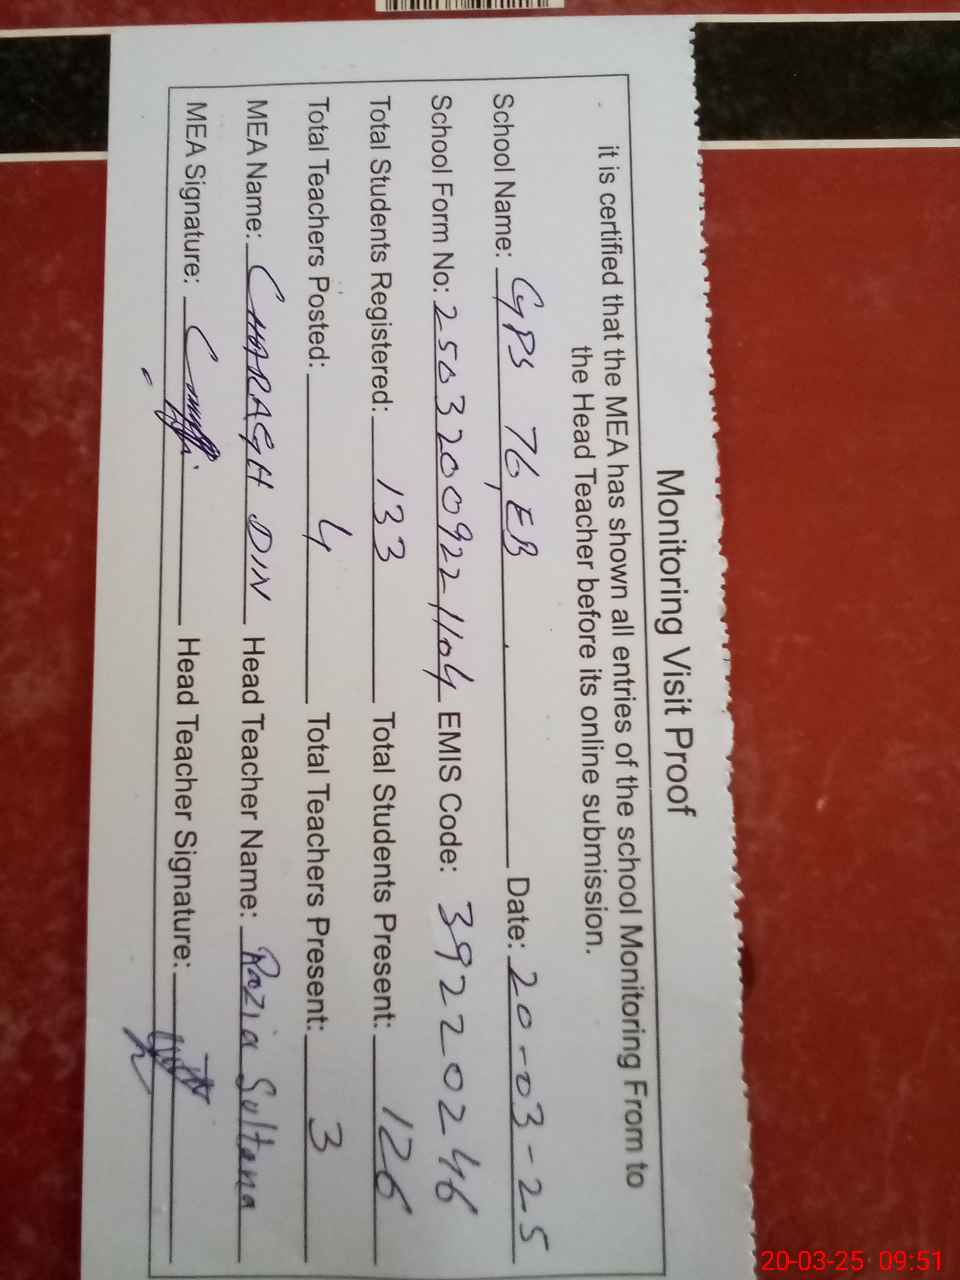 Monitoring Visit Proof
it is certified that the MEA has shown all entries of the school Monitoring From to
the Head Teacher before its online submission.
School Name: GPS 76, EB Date: 20-03-25
School Form No: 2503200922 1104 EMIS Code: 39220246
Total Students Registered: 133 Total Students Present: 126
Total Teachers Posted: 4 Total Teachers Present: 3
MEA Name: CHARAGH DIN Head Teacher Name: Razia Sultana
MEA Signature: Head Teacher Signature:
20-03-25 09:51